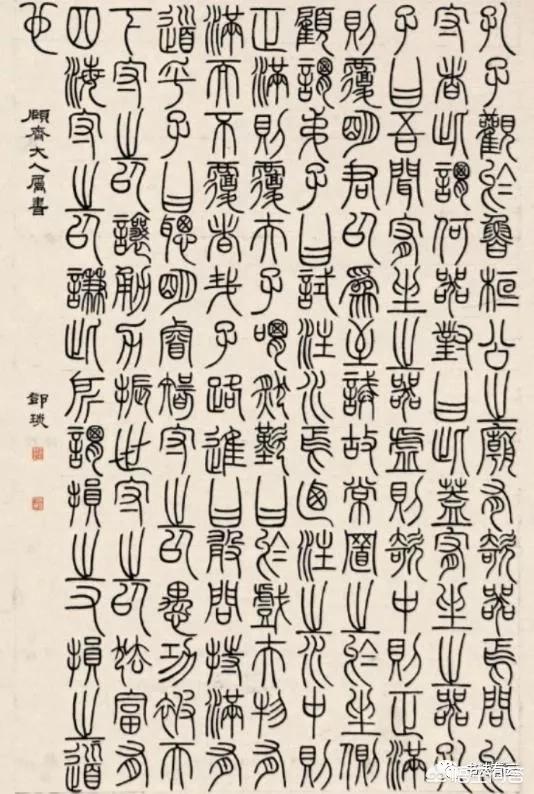 孔子觀於魯桓公之廟有欹器焉問於
守者此謂何器對曰此蓋宥坐之器孔
子曰吾聞宥坐之器虛則欹中則正滿
則覆明君以為至誡故常置之於坐側
顧謂弟子曰試注水焉乃注之水中則
正滿則覆夫子喟然歎曰於戲夫物有
滿而不覆者哉子路進曰敢問持滿有
道乎子曰聰明睿智守之以愚功被天
下守之以讓勇力振世守之以怯富有
四海守之以謙此所謂損之又損之道
也
大人屬書
鄧琰